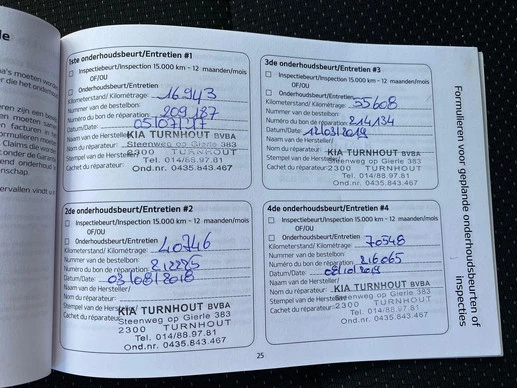 de
1ste onderhoudsbeurt/Entretien #1
Inspectiebeurt/Inspection 15.000 km - 12 maanden/mois
OF/OU
Onderhoudsbeurt/Entretien
Kilometerstand/ Kilométrage: 16943
Nummer van de bestelbon:
Numéro du bon de réparation: 209187
Datum/Date: 05/07/17
Naam van de Hersteller/
Nom du réparateur:
Stempel van de Hersteller/
Cachet du réparateur:
KIA TURNHOUT BVBA
Steenweg op Gierle 383
2300 TURNHOUT
Tel. 014/88.97.81
Ond.nr. 0435.843.467
2de onderhoudsbeurt/Entretien #2
Inspectiebeurt/Inspection 15.000 km - 12 maanden/mois
OF/OU
Onderhoudsbeurt/Entretien
Kilometerstand/ Kilométrage: 40746
Nummer van de bestelbon:
Numéro du bon de réparation: 212285
Datum/Date: 03/08/2018
Naam van de Hersteller/
Nom du réparateur:
Stempel van de Hersteller/
Cachet du réparateur:
KIA TURNHOUT BVBA
Steenweg op Gierle 383
2300 TURNHOUT
Tel. 014/88.97.81
Ond.nr. 0435.843.467
3de onderhoudsbeurt/Entretien #3
Inspectiebeurt/Inspection 15.000 km - 12 maanden/mois
OF/OU
Onderhoudsbeurt/Entretien
Kilometerstand/ Kilométrage: 55608
Nummer van de bestelbon:
Numéro du bon de réparation: 214134
Datum/Date: 12/03/2019
Naam van de Hersteller/
Nom du réparateur:
Stempel van de Hersteller/
Cachet du réparateur:
KIA TURNHOUT BVBA
Steenweg op Gierle 383
2300 TURNHOUT
Tel. 014/88.97.81
Ond.nr. 0435.843.467
4de onderhoudsbeurt/Entretien #4
Inspectiebeurt/Inspection 15.000 km - 12 maanden/mois
OF/OU
Onderhoudsbeurt/Entretien
Kilometerstand/ Kilométrage: 70548
Nummer van de bestelbon:
Numéro du bon de réparation: 216065
Datum/Date: 08/10/2019
Naam van de Hersteller/
Nom du réparateur:
Stempel van de Hersteller/
Cachet du réparateur:
KIA TURNHOUT BVBA
Steenweg op Gierle 383
2300 TURNHOUT
Tel. 014/88.97.81
Ond.nr. 0435.843.467
Formulieren voor geplande onderhoudsbeurten of
inspecties
25